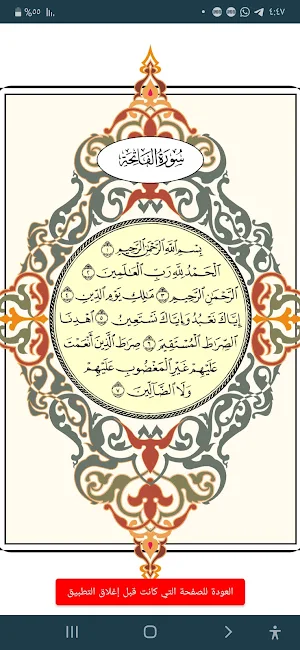 %٥٥
٤:٤٧
سُورَةُ الفَاتِحَةِ
بِسْمِ اللَّهِ الرَّحْمَٰنِ الرَّحِيمِ ١
الْحَمْدُ لِلَّهِ رَبِّ الْعَالَمِينَ ٢
الرَّحْمَٰنِ الرَّحِيمِ ٣ مَالِكِ يَوْمِ الدِّينِ ٤
إِيَّاكَ نَعْبُدُ وَإِيَّاكَ نَسْتَعِينُ ٥ اهْدِنَا
الصِّرَاطَ الْمُسْتَقِيمَ ٦ صِرَاطَ الَّذِينَ أَنْعَمْتَ
عَلَيْهِمْ غَيْرِ الْمَغْضُوبِ عَلَيْهِمْ
وَلَا الضَّالِّينَ ٧
العودة للصفحة التي كانت قبل إغلاق التطبيق